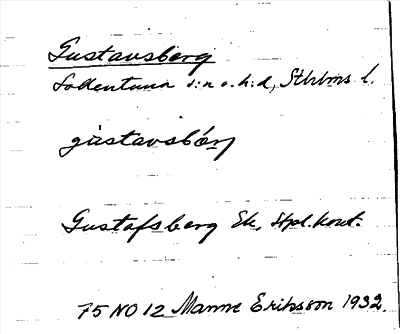 Gustavsberg
Sollentuna s:n o. h:d, Sthlms l.
gùstavsbær̨j
Gustafsberg Ek, Hpl.kont.
75 NO 12 Manne Eriksson 1932.